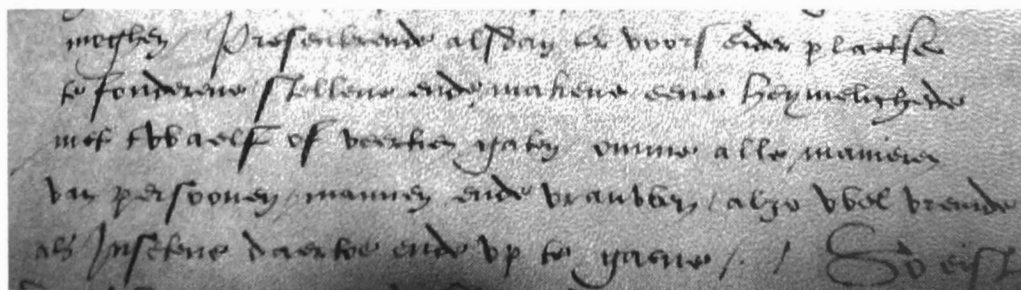 moghen / Presenterende alsdan ter voors eider plaetse
te fonderene stellene ende makene eene heymelichede
met twaelf of veertien gaten omme alle manieren
van persoonen / mannen ende vrauwen / alzo wel vremde
als Insetene daertoe ende up te gaene / . / So eist